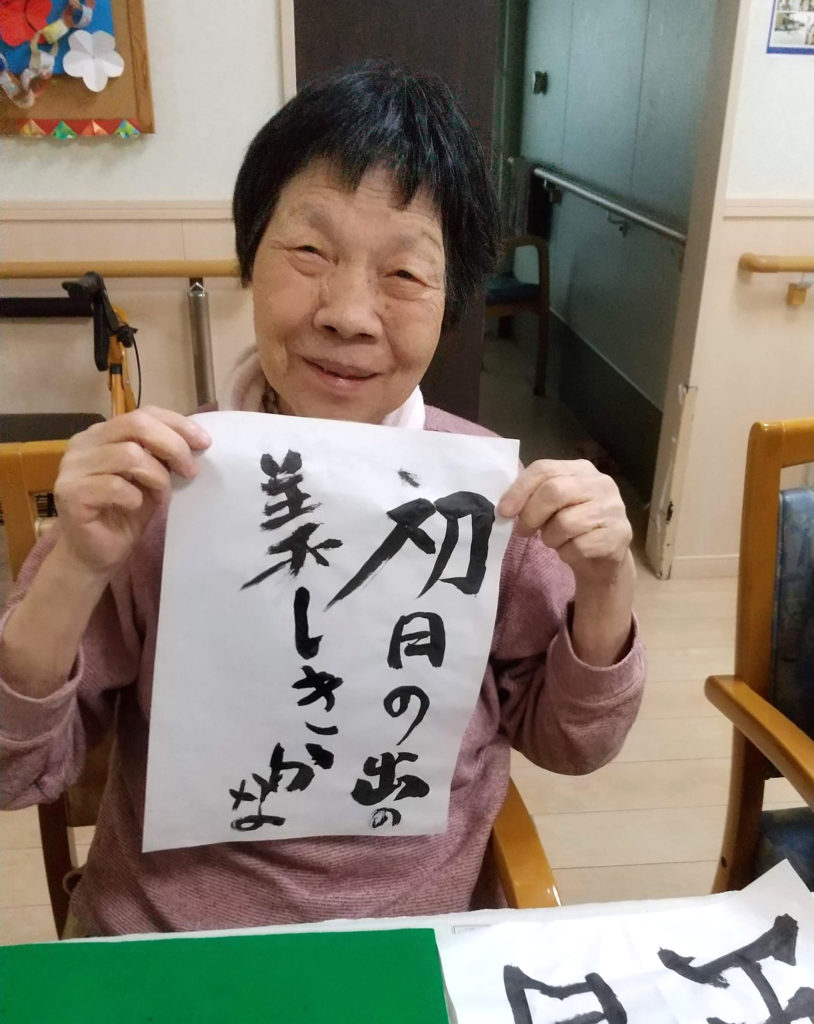 初日の出の
美しきかな